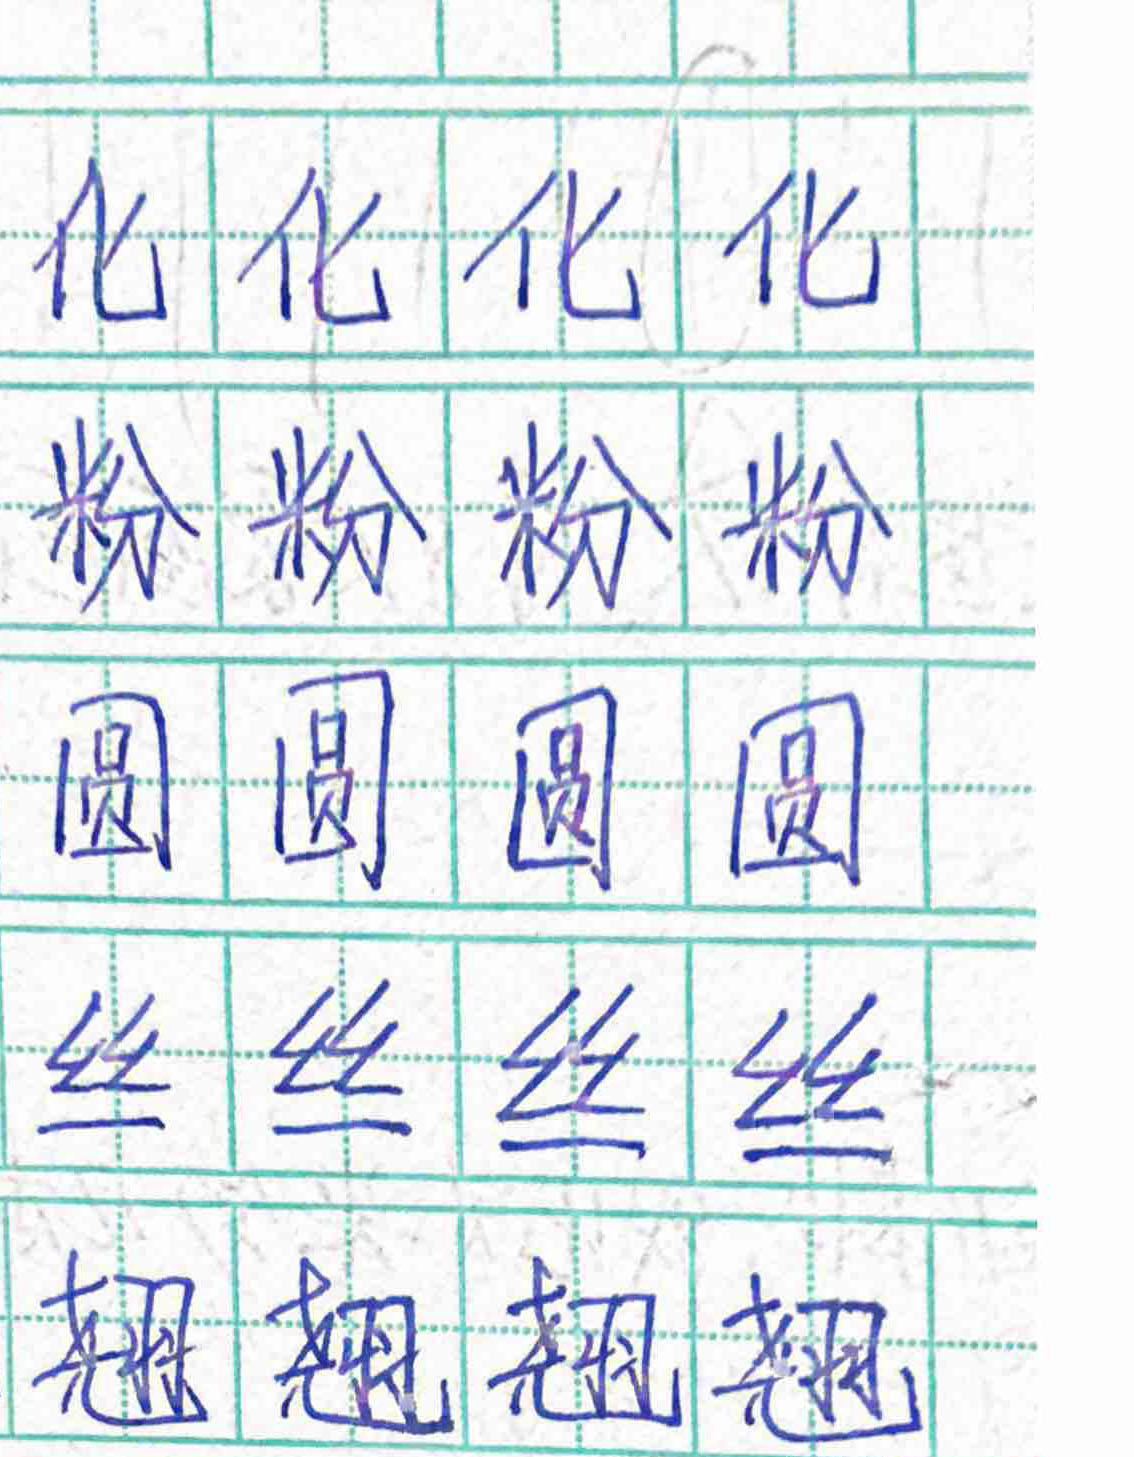 化化化化
粉粉粉粉
圆圆圆圆
丝丝丝丝
翘翘翘翘